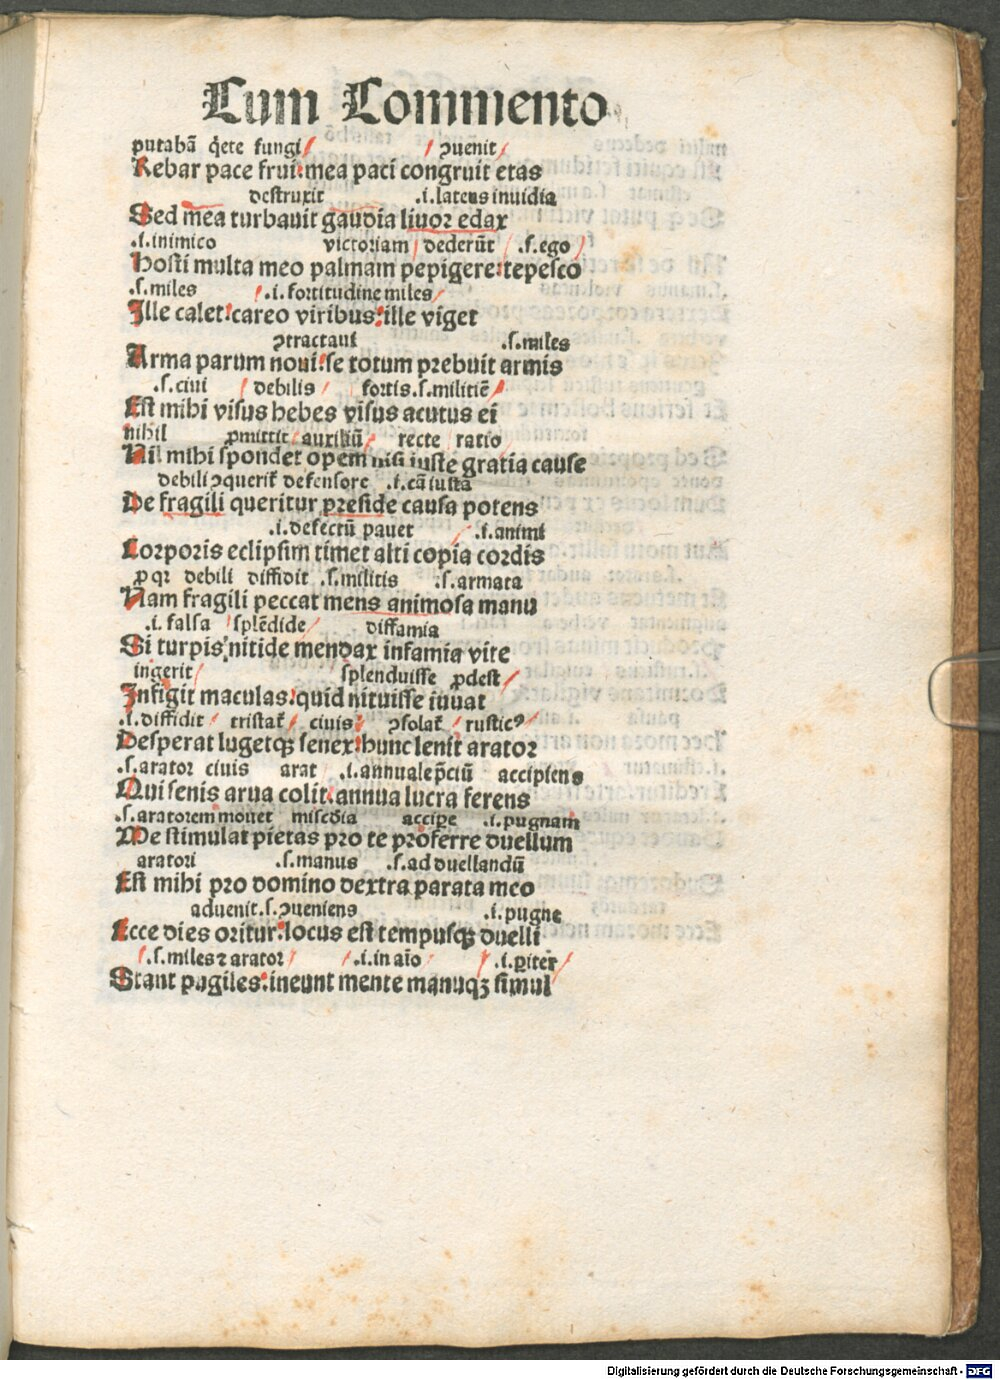 Cum Commento
putabã q̃ete fungi ꝯuenit
Rebar pace frui: mea paci congruit etas
destruxit .i. latens inuidia
Sed mea turbauit gaudia liuor edax
.s. inimico victoriam dederũt .s. ego
Hosti multa meo palmam pepigere: tepesco
.s. miles .i. fortitudine miles
Ille calet: careo viribus: ille viget
ꝯtractaui .s. miles
Arma parum noui: se totum prebuit armis
.s. ciui debilis fortis .s. militiẽ
Est mihi visus hebes visus acutus ei
nihil ꝓmittit auxiliũ recte ratio
Nil mihi spondet opem nisi iuste gratia cause
debili ꝯquerit᷑ defensore .i. cã iusta
De fragili queritur preside causa potens
.i. defectũ pauet .i. animi
Corporis eclipsim timet alti copia cordis
ꝓ qꝛ debili diffidit .s. militis .s. armata
Nam fragili peccat mens animosa manu
.i. falsa splẽdide diffamia
Si turpis nitide mendax infamia vite
ingerit splenduisse ꝓdest
Infigit maculas: quid nituisse iuuat
.i. diffidit tristat᷑ ciuis ꝯsolat᷑ rusticꝰ
Desperat lugetqꝫ senex: hunc lenit arator
.s. arator ciuis arat .i. annuale p̃ciũ accipiens
Qui senis arua colit: annua lucra ferens
.s. aratorem mouet misedia accipe .i. pugnam
Me stimulat pietas pro te proferre duellum
aratori .s. manus .s. ad duellandũ
Est mihi pro domino dextra parata meo
aduenit .s. ꝯueniens .i. pugne
Ecce dies oritur: locus est tempusqꝫ duelli
.s. miles ⁊ arator .i. in aĩo .i. ꝑiter
Stant pugiles: ineunt mente manuqꝫ simul
Digitalisierung gefördert durch die Deutsche Forschungsgemeinschaft - DFG